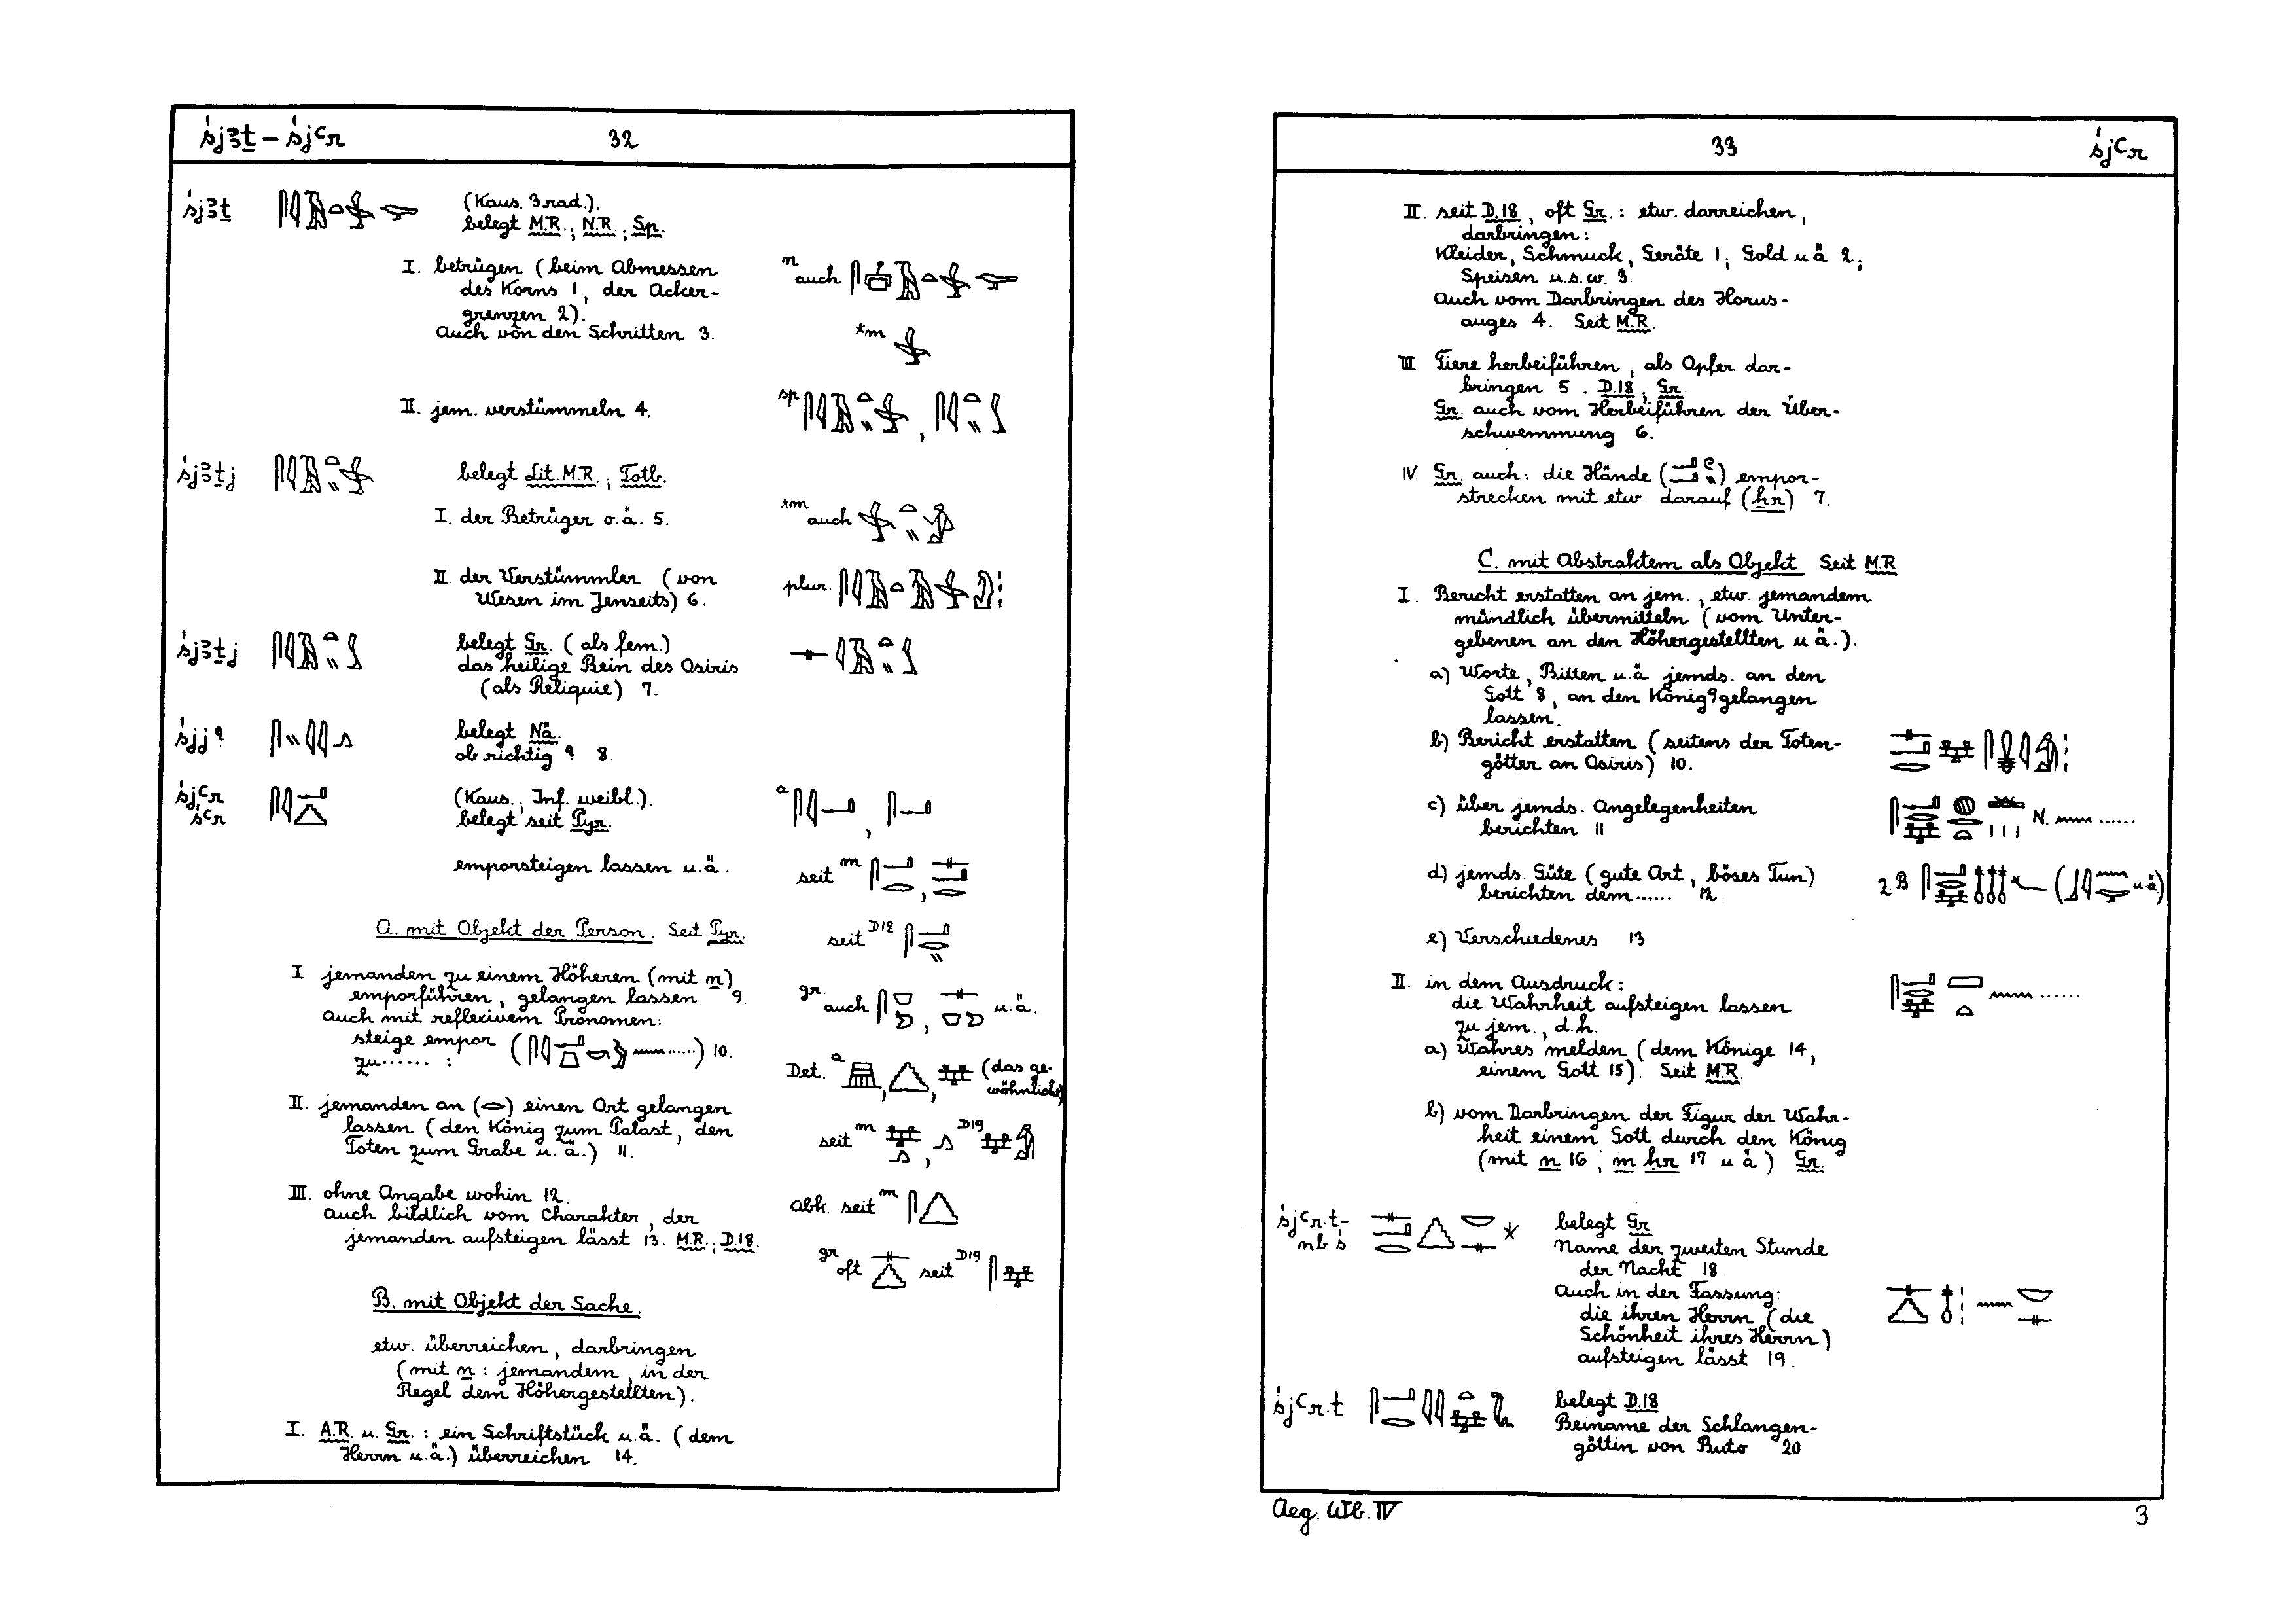 śjꜣṯ – śjꜥr 32
śjꜣṯ (Kaus. 3rad.).
belegt M.R.; N.R.; Sp.
I. betrügen (beim Abmessen
des Korns 1, der Acker-
grenzen 2).
Auch von den Schritten 3.
n auch
*m
II. jem. verstümmeln 4.
sp
śjꜣṯj belegt Lit. M.R.; Totb.
I. der Betrüger o.ä. 5.
*m auch
II. der Verstümmler (von
Wesen im Jenseits) 6.
plur.
śjꜣṯj belegt Gr. (als fem.)
das heilige Bein des Osiris
(als Reliquie) 7.
śjj? belegt Nä.
ob richtig? 8.
śjꜥr (Kaus., Inf. weibl.).
śꜥr belegt seit Pyr.
a
emporsteigen lassen u.ä.
seit m
A. mit Objekt der Person. Seit Pyr.
seit D18
I. jemanden zu einem Höheren (mit n)
emporführen, gelangen lassen 9.
auch mit reflexivem Pronomen:
steige empor ( ......) 10.
zu ...... :
gr. auch u.ä.
Det. a (das ge-
wöhnliche)
II. jemanden an ( ) einen Ort gelangen
lassen (den König zum Palast, den
Toten zum Grabe u.ä.) 11.
seit m , D19
III. ohne Angabe wohin 12.
auch bildlich vom Charakter, der
jemanden aufsteigen lässt 13. M.R.; D.18.
abk. seit m
gr oft seit D19
B. mit Objekt der Sache.
etw. überreichen, darbringen
(mit n: jemandem, in der
Regel dem Höhergestellten).
I. A.R. u. Gr.: ein Schriftstück u.ä. (dem
Herrn u.ä.) überreichen 14.
33 śjꜥr
II. seit D.18, oft Gr.: etw. darreichen,
darbringen:
Kleider, Schmuck, Geräte 1; Gold u ä 2;
Speisen u.s.w. 3
Auch vom Darbringen des Horus-
auges 4. Seit M.R.
III Tiere herbeiführen, als Opfer dar-
bringen 5. D.18; Gr
Gr. auch vom Herbeiführen der Über-
schwemmung 6.
IV. Gr. auch: die Hände ( ) empor-
strecken mit etw. darauf (ḥr) 7.
C. mit Abstraktem als Objekt Seit M.R
I. Bericht erstatten an jem., etw. jemandem
mündlich übermitteln (vom Unter-
gebenen an den Höhergestellten u ä.).
a) Worte, Bitten u.ä jemds. an den
Gott 8, an den König 9 gelangen
lassen.
b) Bericht erstatten (seitens der Toten-
götter an Osiris) 10.
c) über jemds. Angelegenheiten
berichten 11
N. ......
d) jemds. Güte (gute Art, böses Tun)
berichten dem ...... 12
z.B ( u.ä)
e) Verschiedenes 13
II. in dem Ausdruck:
die Wahrheit aufsteigen lassen
zu jem., d.h.
a) Wahres melden (dem Könige 14,
einem Gott 15). Seit M.R.
b) vom Darbringen der Figur der Wahr-
heit einem Gott durch den König
(mit n 16; m ḥr 17 u ä) Gr.
śjꜥr.t- belegt Gr
nb ś Name der zweiten Stunde
der Nacht 18.
Auch in der Fassung:
die ihren Herrn (die
Schönheit ihres Herrn)
aufsteigen lässt 19.
śjꜥr.t belegt D.18
Beiname der Schlangen-
göttin von Buto 20
Aeg. Wb. IV 3